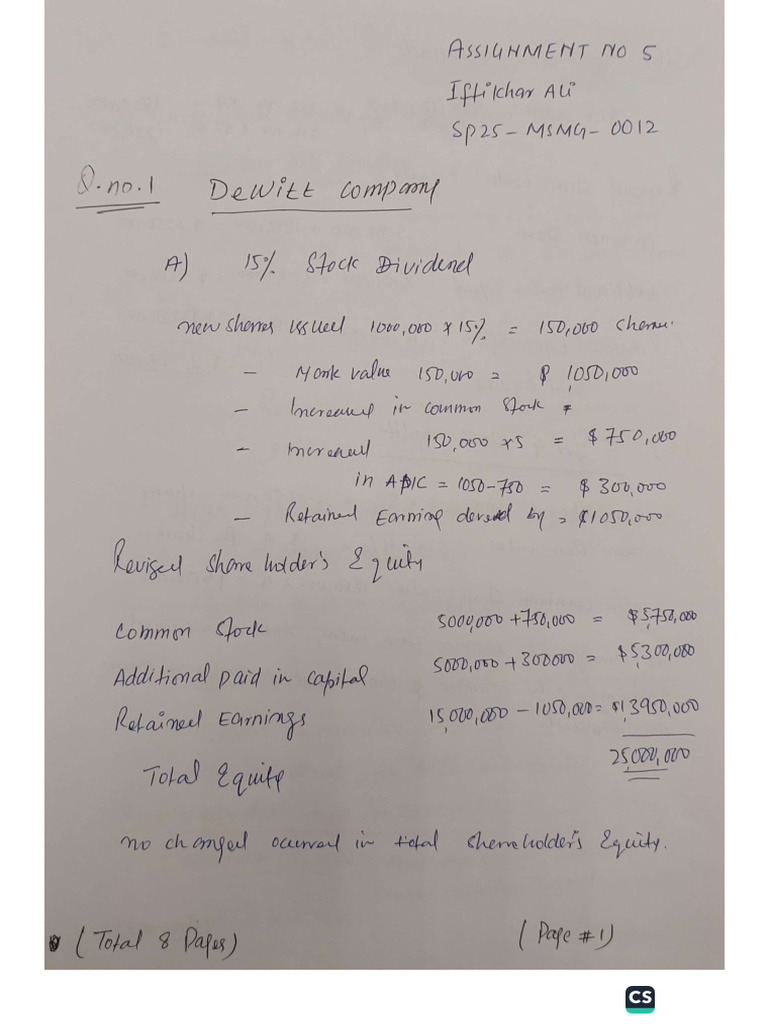 ASSIGNMENT NO 5
Iftikhar Ali
SP25-MSMG-0012
Q.no.1 Dewitt company
A) 15% Stock Dividend
new shares issued 1000,000 x 15% = 150,000
- value 150,000 = $ 1050,000
- Increased in common Stock
- Increased 150,000 x 5 = $750,000
in APIC = 1050-750 = $ 300,000
- Retained Earning by = $1050,000
Revised shareholder's Equity
Common Stock 5000,000 + 750,000 = $5,750,000
Additional paid in capital 5000,000 + 300000 = $5,300,000
Retained Earnings 15,000,000 - 1050,000 = $13950,000
Total Equity 25,000,000
no changed ocurred in total shareholder's Equity.
(Total 8 Pages) (Page #1)
CS